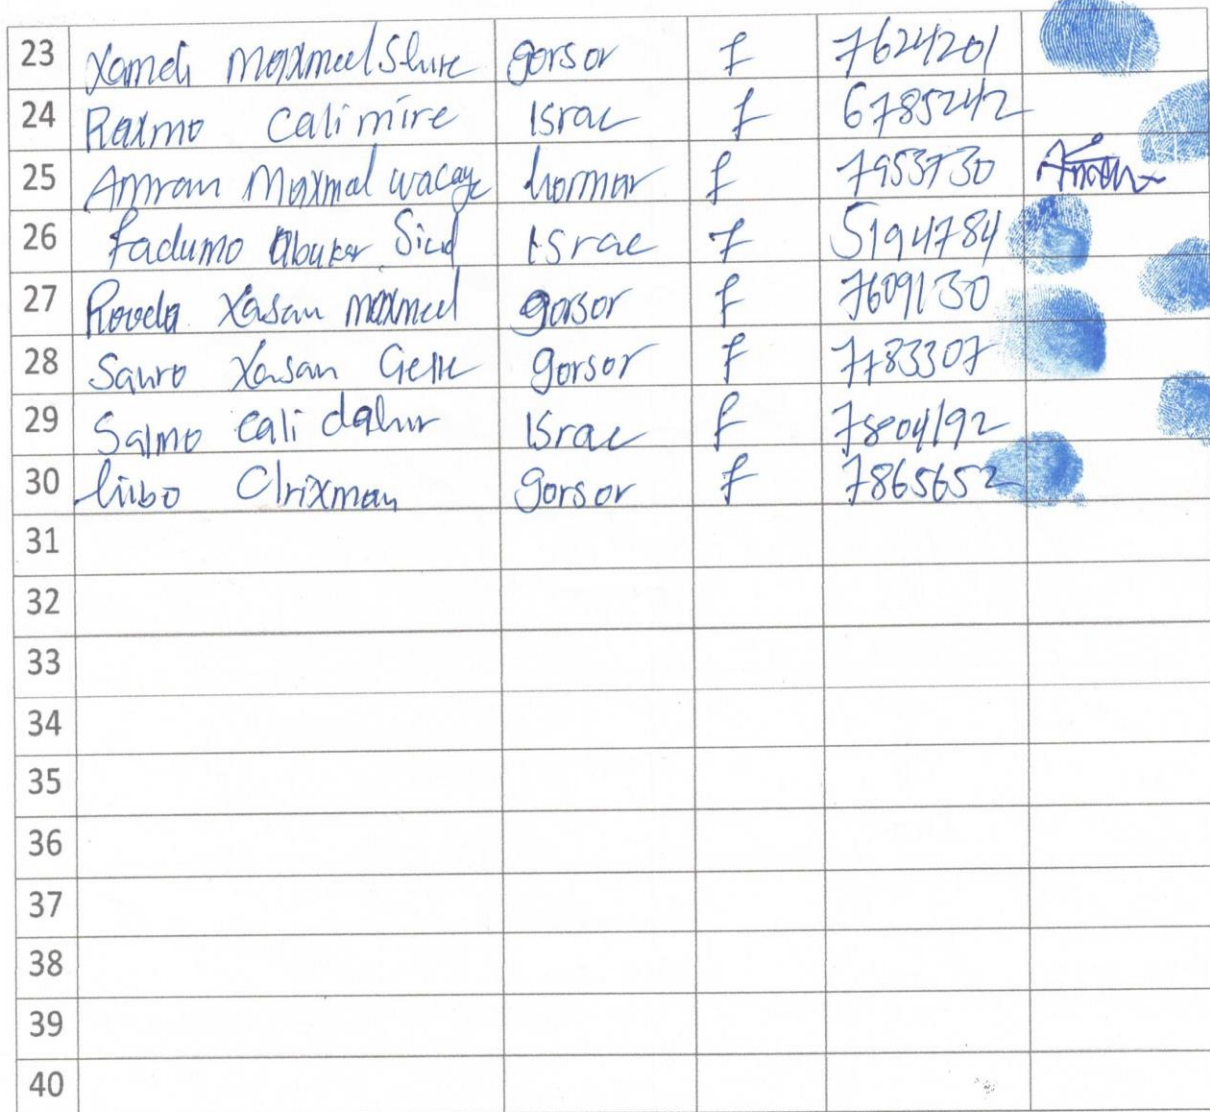 23 Xamdi Maxmed Shire gorsor f 7624201
24 Raxmo Cali mire Israc f 6785242
25 Amran Maxmed wacaye hormar f 7953730
26 fadumo Abuker Sicid Israc f 5194784
27 Rooda Xasan maxmed gorsor f 7609130
28 Sauro Xasan Gelle gorsor f 7783307
29 Salmo cali dahir Israc f 7804192
30 liibo C/rixman gorsor f 7865652
31
32
33
34
35
36
37
38
39
40